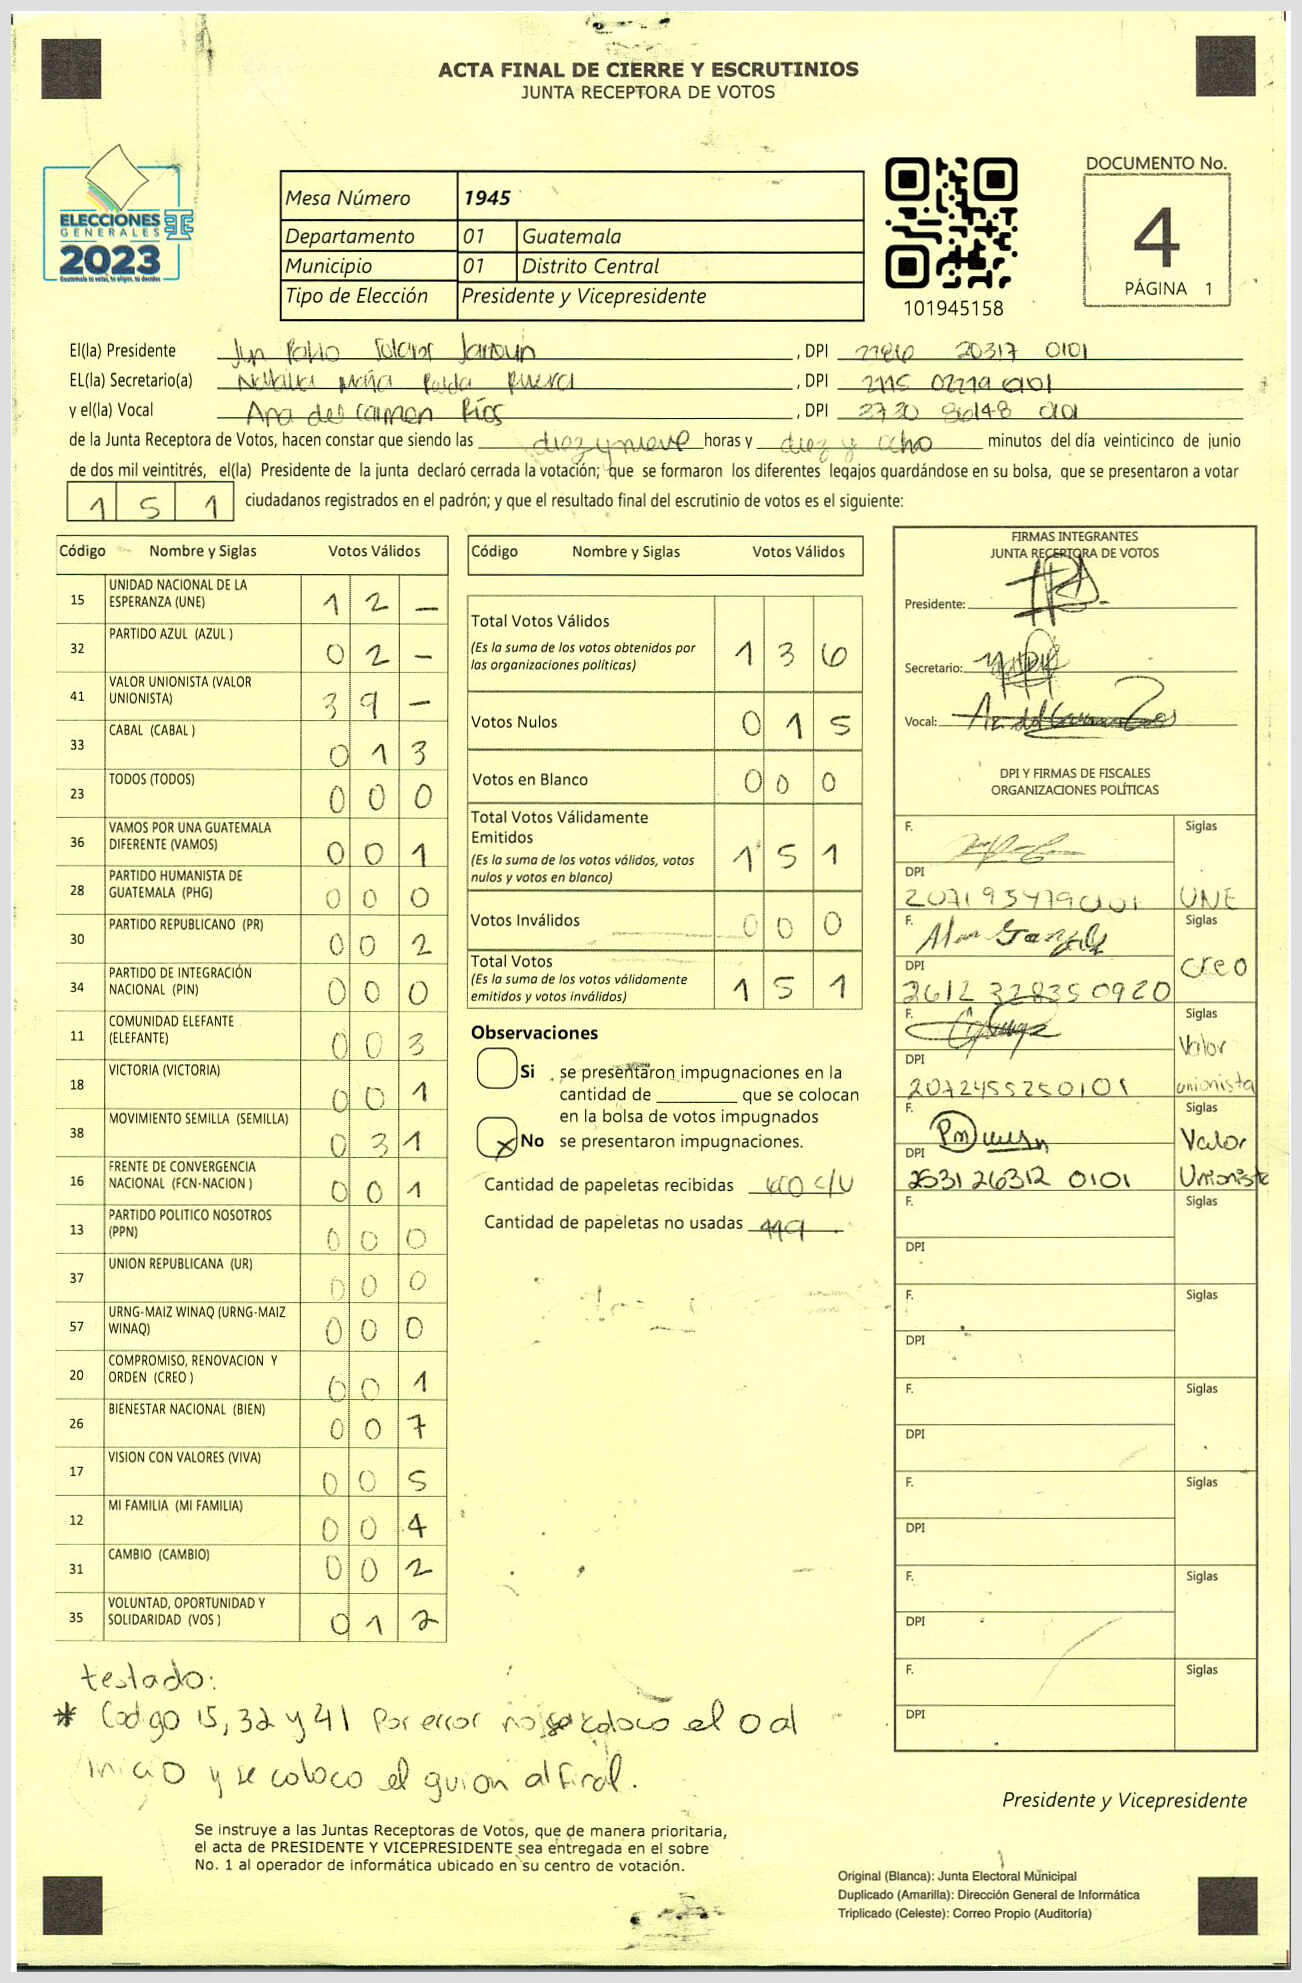 ACTA FINAL DE CIERRE Y ESCRUTINIOS
JUNTA RECEPTORA DE VOTOS
ELECCIONES
GENERALES
2023
Guatemala tú votas, tú eliges, tú decides
Mesa Número 1945
Departamento 01 Guatemala
Municipio 01 Distrito Central
Tipo de Elección Presidente y Vicepresidente
101945158
DOCUMENTO No.
4
PÁGINA 1
El(la) Presidente Pablo , DPI 20317 0101
EL(la) Secretario(a) Rivera , DPI 0101
y el(la) Vocal Ana del Carmen Ríos , DPI 3730 86148 0101
de la Junta Receptora de Votos, hacen constar que siendo las diez y nueve horas y diez y ocho minutos del día veinticinco de junio
de dos mil veintitrés, el(la) Presidente de la junta declaró cerrada la votación; que se formaron los diferentes legajos guardándose en su bolsa, que se presentaron a votar
1 5 1 ciudadanos registrados en el padrón; y que el resultado final del escrutinio de votos es el siguiente:
Código Nombre y Siglas Votos Válidos
15 UNIDAD NACIONAL DE LA ESPERANZA (UNE) 1 2 -
32 PARTIDO AZUL (AZUL ) 0 2 -
41 VALOR UNIONISTA (VALOR UNIONISTA) 3 9 -
33 CABAL (CABAL ) 0 1 3
23 TODOS (TODOS) 0 0 0
36 VAMOS POR UNA GUATEMALA DIFERENTE (VAMOS) 0 0 1
28 PARTIDO HUMANISTA DE GUATEMALA (PHG) 0 0 0
30 PARTIDO REPUBLICANO (PR) 0 0 2
34 PARTIDO DE INTEGRACIÓN NACIONAL (PIN) 0 0 0
11 COMUNIDAD ELEFANTE (ELEFANTE) 0 0 3
18 VICTORIA (VICTORIA) 0 0 1
38 MOVIMIENTO SEMILLA (SEMILLA) 0 3 1
16 FRENTE DE CONVERGENCIA NACIONAL (FCN-NACION ) 0 0 1
13 PARTIDO POLITICO NOSOTROS (PPN) 0 0 0
37 UNION REPUBLICANA (UR) 0 0 0
57 URNG-MAIZ WINAQ (URNG-MAIZ WINAQ) 0 0 0
20 COMPROMISO, RENOVACION Y ORDEN (CREO ) 0 0 1
26 BIENESTAR NACIONAL (BIEN) 0 0 7
17 VISION CON VALORES (VIVA) 0 0 5
12 MI FAMILIA (MI FAMILIA) 0 0 4
31 CAMBIO (CAMBIO) 0 0 2
35 VOLUNTAD, OPORTUNIDAD Y SOLIDARIDAD (VOS ) 0 1 2
Código Nombre y Siglas Votos Válidos
Total Votos Válidos 1 3 6
(Es la suma de los votos obtenidos por
las organizaciones políticas)
Votos Nulos 0 1 5
Votos en Blanco 0 0 0
Total Votos Válidamente
Emitidos 1 5 1
(Es la suma de los votos válidos, votos
nulos y votos en blanco)
Votos Inválidos 0 0 0
Total Votos 1 5 1
(Es la suma de los votos válidamente
emitidos y votos inválidos)
Observaciones
Si se presentaron impugnaciones en la
cantidad de ________ que se colocan
en la bolsa de votos impugnados
X No se presentaron impugnaciones.
Cantidad de papeletas recibidas c/u
Cantidad de papeletas no usadas 449
FIRMAS INTEGRANTES
JUNTA RECEPTORA DE VOTOS
Presidente:
Secretario:
Vocal:
DPI Y FIRMAS DE FISCALES
ORGANIZACIONES POLÍTICAS
F. Siglas
DPI
2071934790101 UNE
F. Siglas
DPI Creo
2612 32835 0920
F. Siglas
DPI Valor
2072455250101 unionista
F. Siglas
DPI Valor
2531 26312 0101 Unionista
F. Siglas
DPI
F. Siglas
DPI
F. Siglas
DPI
F. Siglas
DPI
F. Siglas
DPI
F. Siglas
DPI
testado:
* Codigo 15, 32 y 41 Por error no se coloco el 0 al
inicio y se coloco el guion al final.
Presidente y Vicepresidente
Se instruye a las Juntas Receptoras de Votos, que de manera prioritaria,
el acta de PRESIDENTE Y VICEPRESIDENTE sea entregada en el sobre
No. 1 al operador de informática ubicado en su centro de votación.
Original (Blanca): Junta Electoral Municipal
Duplicado (Amarilla): Dirección General de Informática
Triplicado (Celeste): Correo Propio (Auditoría)